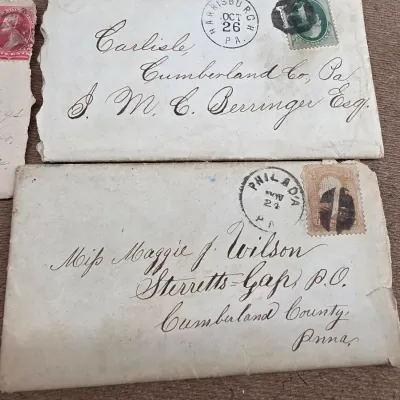 HARRISBURGH
OCT
26
PA.
Carlisle,
Cumberland Co, Pa
J. M. C. Berringer Esq.
PHILAD'A
NOV
PA
Miss Maggie J. Wilson
Sterretts-Gap P.O.
Cumberland County
Penna,